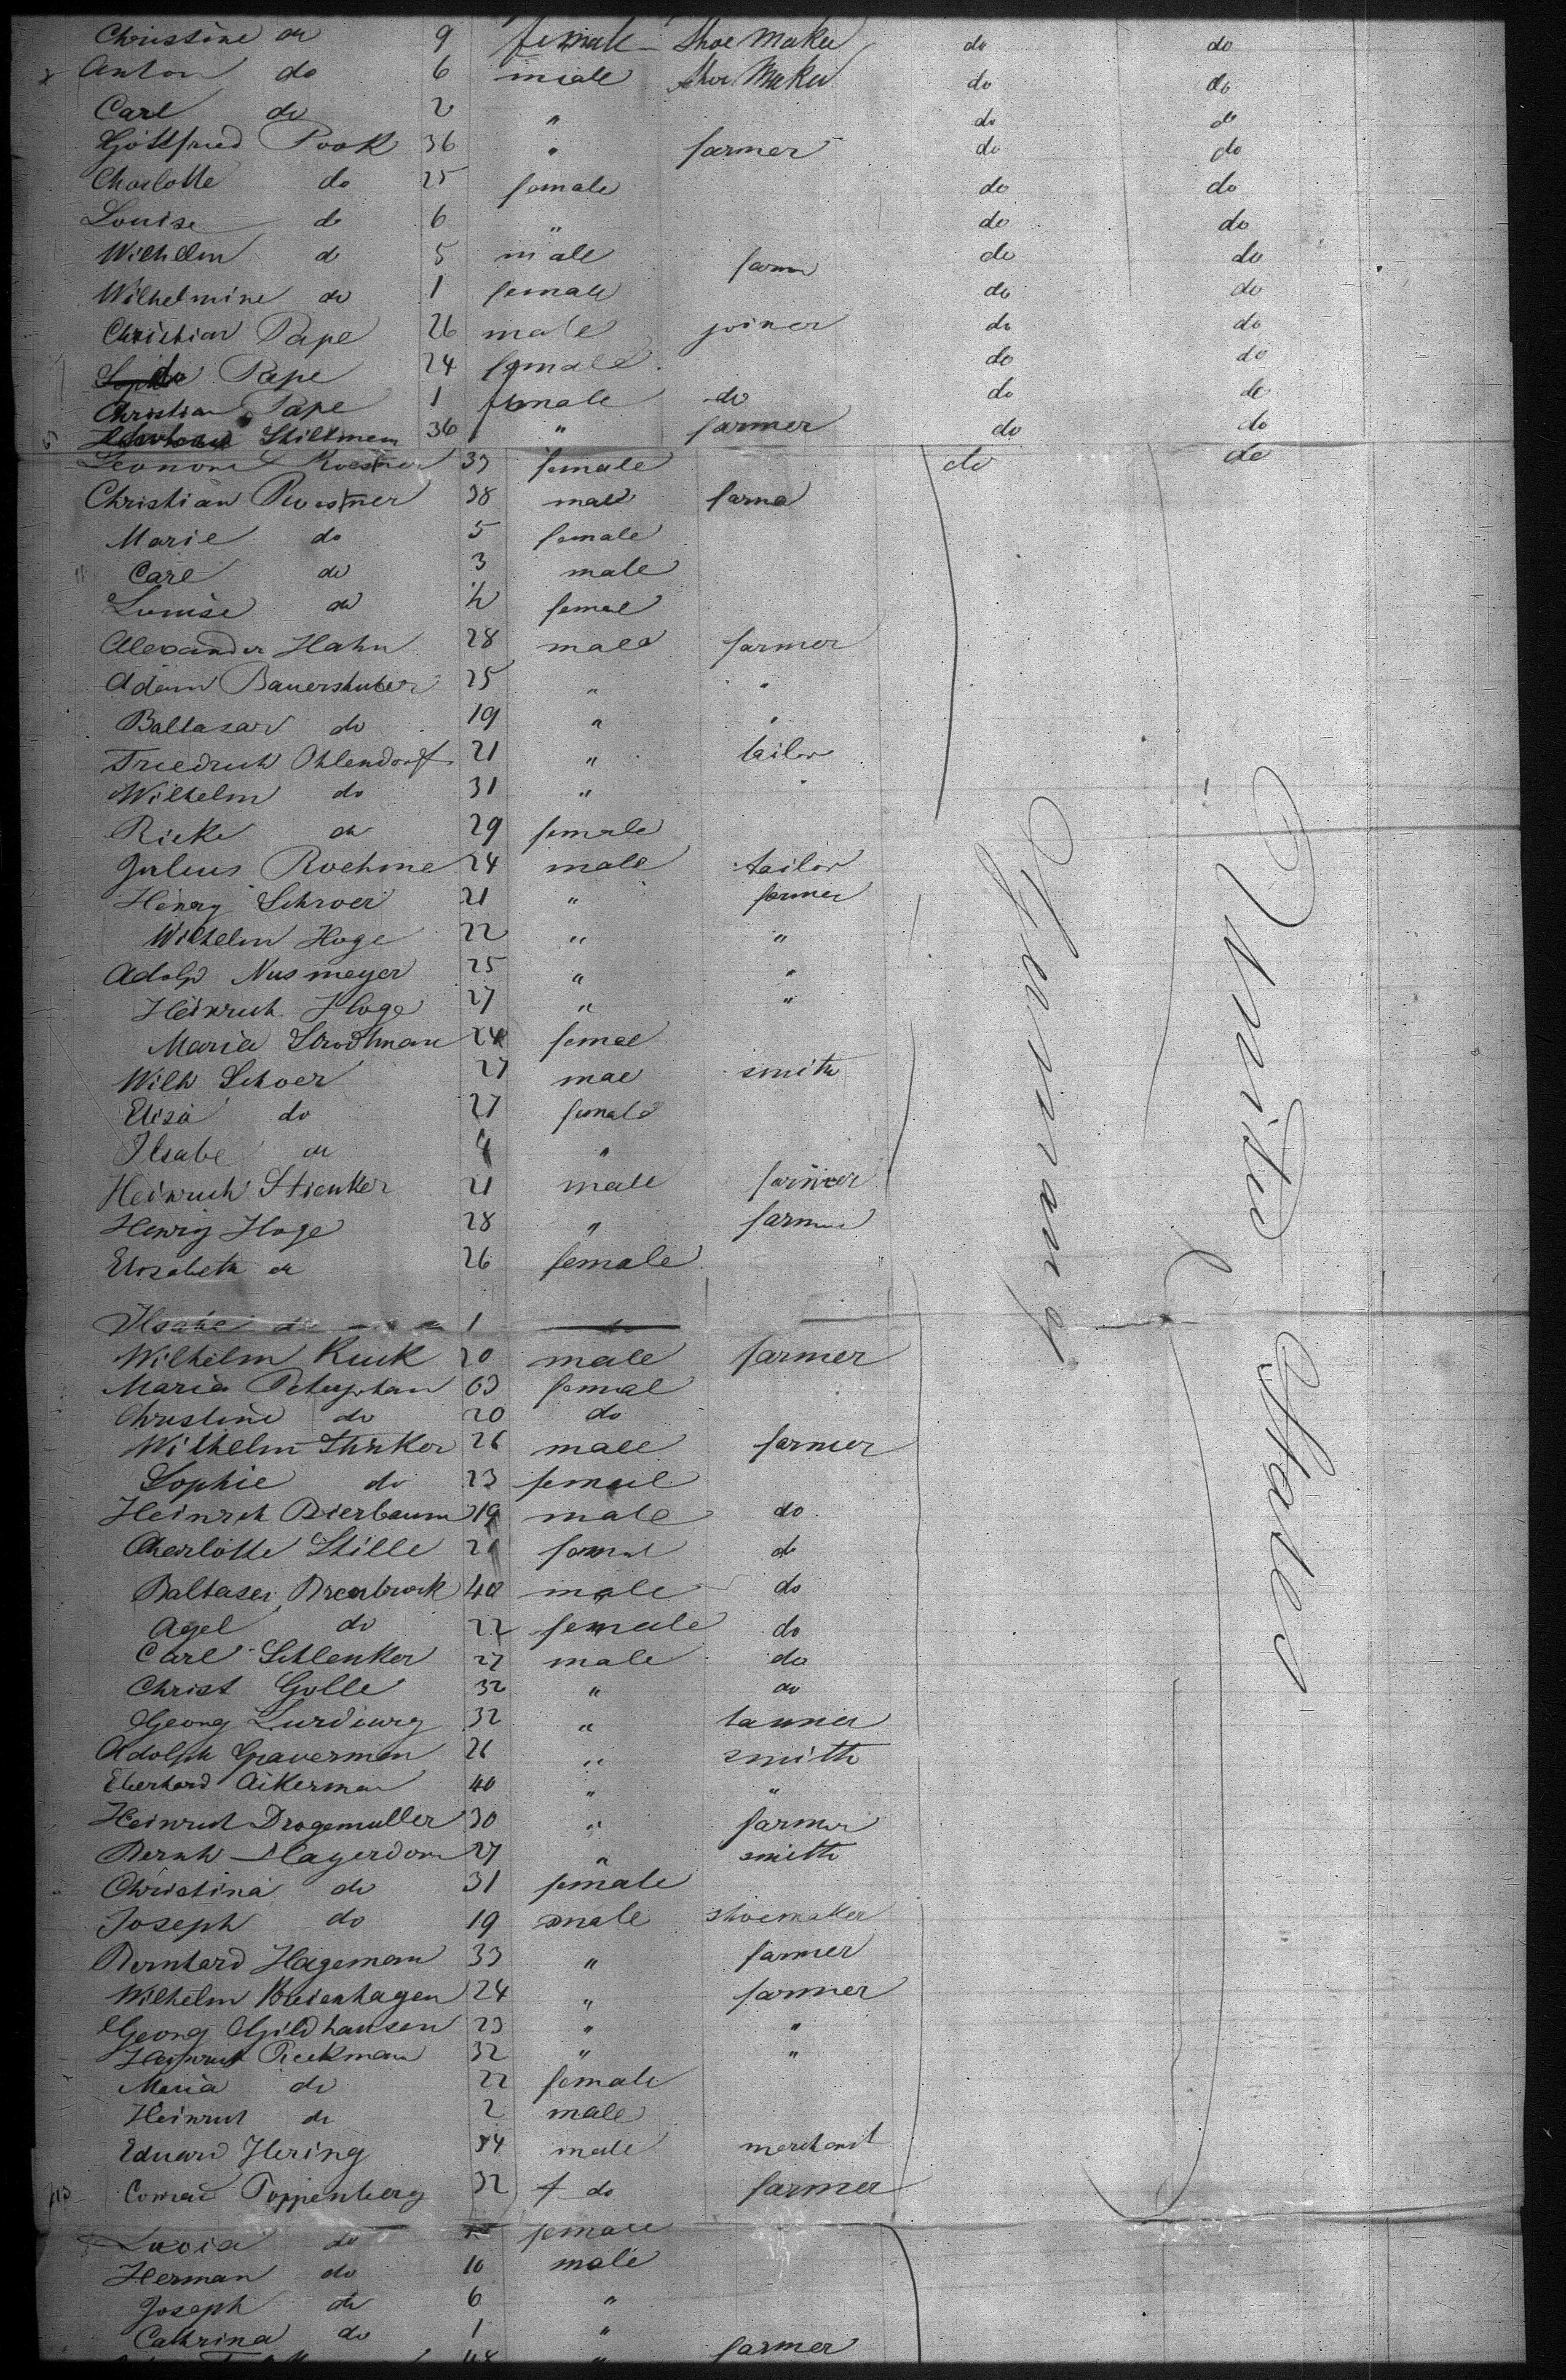 Christine do 9 female Shoe Maker do do
Anton do 6 male Shoe Maker do do
Carl do 2 " do do
Gottfried Pook 36 " farmer do do
Charlotte do 25 female do do
Louise do 6 " do do
Wilhelm do 5 male farm do do
Wilhelmine do 1 female do do
Christian Pape 26 male joiner do do
do Pape 24 female do do
Christian Pape 1 female do do do
Stiltmem 36 " farmer do do
Leonore 33 female do do
Christian 38 male farme
Marie do 5 female
Carl do 3 male
Louise do 1/2 femal
Alexander Hahn 28 male farmer
Adam Bauershuber 25 " "
Baltasar do 19 " "
Friedrich Ohlendorf 21 " tailor
Wilhelm do 31 " "
Rieke do 29 female
Julius Roehme 24 male tailor
Henry Schroer 21 " farmer
Wilhelm Hoge 22 " "
Adolp Nusmeyer 25 " "
Heinrich Hoge 27 " "
Maria Strothman 24 femal
Wilh Schoer 27 mal smith
Elisa do 27 female
Ilsabe do 4 "
Heinrich Stienker 21 male farmer
Henry Hoge 28 " farmer
Elisabeth do 26 female
Ilsabe do 1 do
Wilhelm Kuck 20 male farmer
Maria 63 femal
Christine do 20 do
Wilhelm Stinker 26 male farmer
Sophie do 23 femal
Heinrich Bierbaum 19 male do
Charlotte Stille 21 femal do
Baltaser Brenbrock 40 male do
Agel do 22 female do
Carl Schlenker 27 male do
Christ Golle 32 " do
Georg Lurdburg 32 " tanner
Adolph Graverman 26 " smith
Eberhard Aikerman 40 " "
Heinrich Drogemuller 30 " farmer
Bernh Hagerdorn 27 " smith
Christina do 31 female
Joseph do 19 male shoemaker
Bernhard Hageman 33 " farmer
Wilhelm Breienhagen 24 " farmer
Georg Gildhausen 23 " "
Heinrich Rieckmann 32 " "
Maria do 22 female
Heinrich do 2 male
Eduard Hering 34 male merchant
Conrad Toppenberg 32 f do farmer
Lucia do female
Herman do 10 male
Joseph do 6 "
Cathrina do 1 "
48 " farmer
Germany
United States